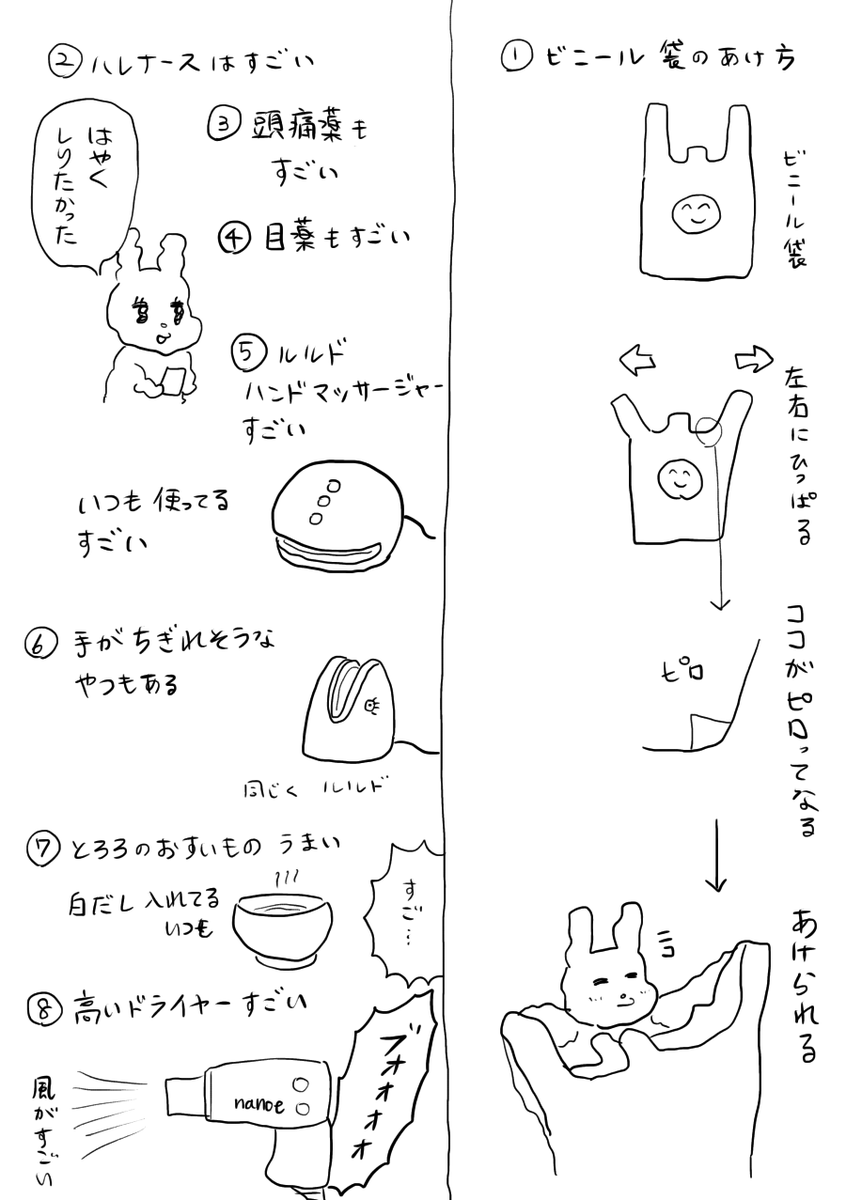 ① ビニール袋のあけ方
ビニール袋
左右にひっぱる
ココがピロってなる
ピロ
あけられる
ニコ
② ハレナースはすごい
はやく
しりたかった
③ 頭痛薬も
すごい
④ 目薬もすごい
⑤ ルルド
ハンドマッサージャー
すごい
いつも使ってる
すごい
⑥ 手がちぎれそうな
やつもある
同じくルルド
⑦ とろろのおすいもの うまい
白だし入れてる
いつも
すご…
⑧ 高いドライヤーすごい
ブオオオオオ
nanoe
風がすごい